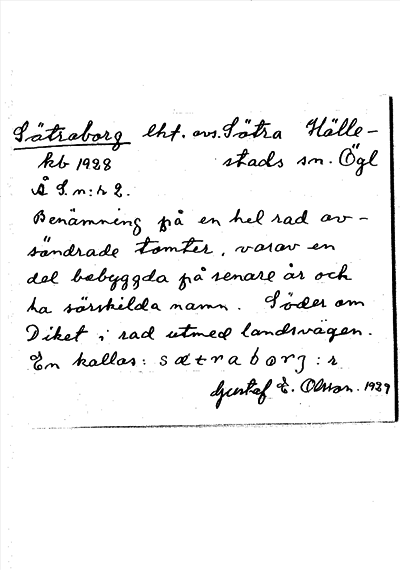 Sätraborg lht. avs. Sätra Hälle-
kb 1928 stads sn. Ögl
Å S. n:r 2.
Benämning på en hel rad av-
söndrade tomter, varav en
del bebyggda på senare år och
ha särskilda namn. Söder om
Diket i rad utmed landsvägen.
En kallas: sætraborg:r
Gustaf E. Olsson. 1929